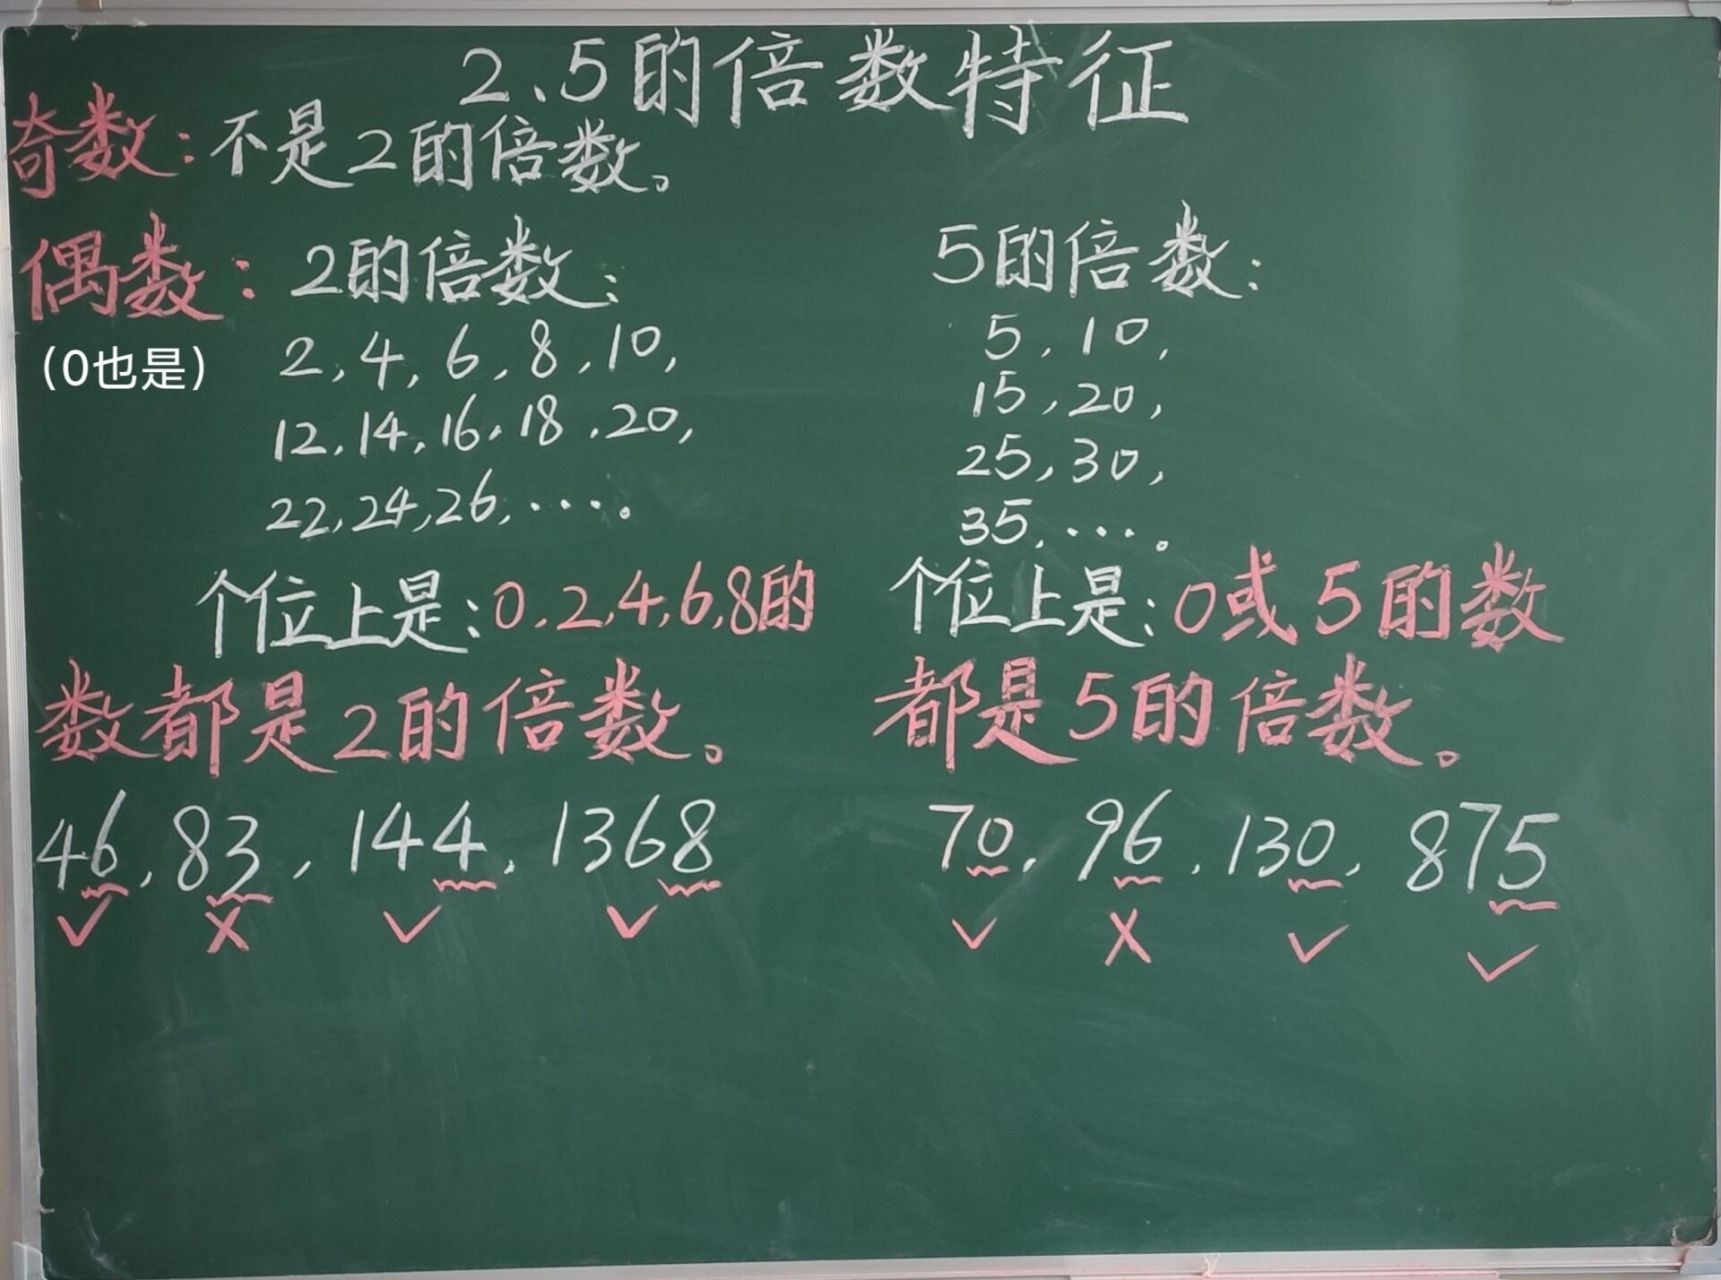 2、5的倍数特征
奇数:不是2的倍数。
偶数: 2的倍数:
(0也是)
2,4,6,8,10,
12,14,16,18,20,
22,24,26,……。
个位上是:0,2,4,6,8的
数都是2的倍数。
46,83,144,1368
✓ X ✓ ✓
5的倍数:
5,10,
15,20,
25,30,
35,……。
个位上是:0或5的数
都是5的倍数。
70,96,130,875
✓ X ✓ ✓